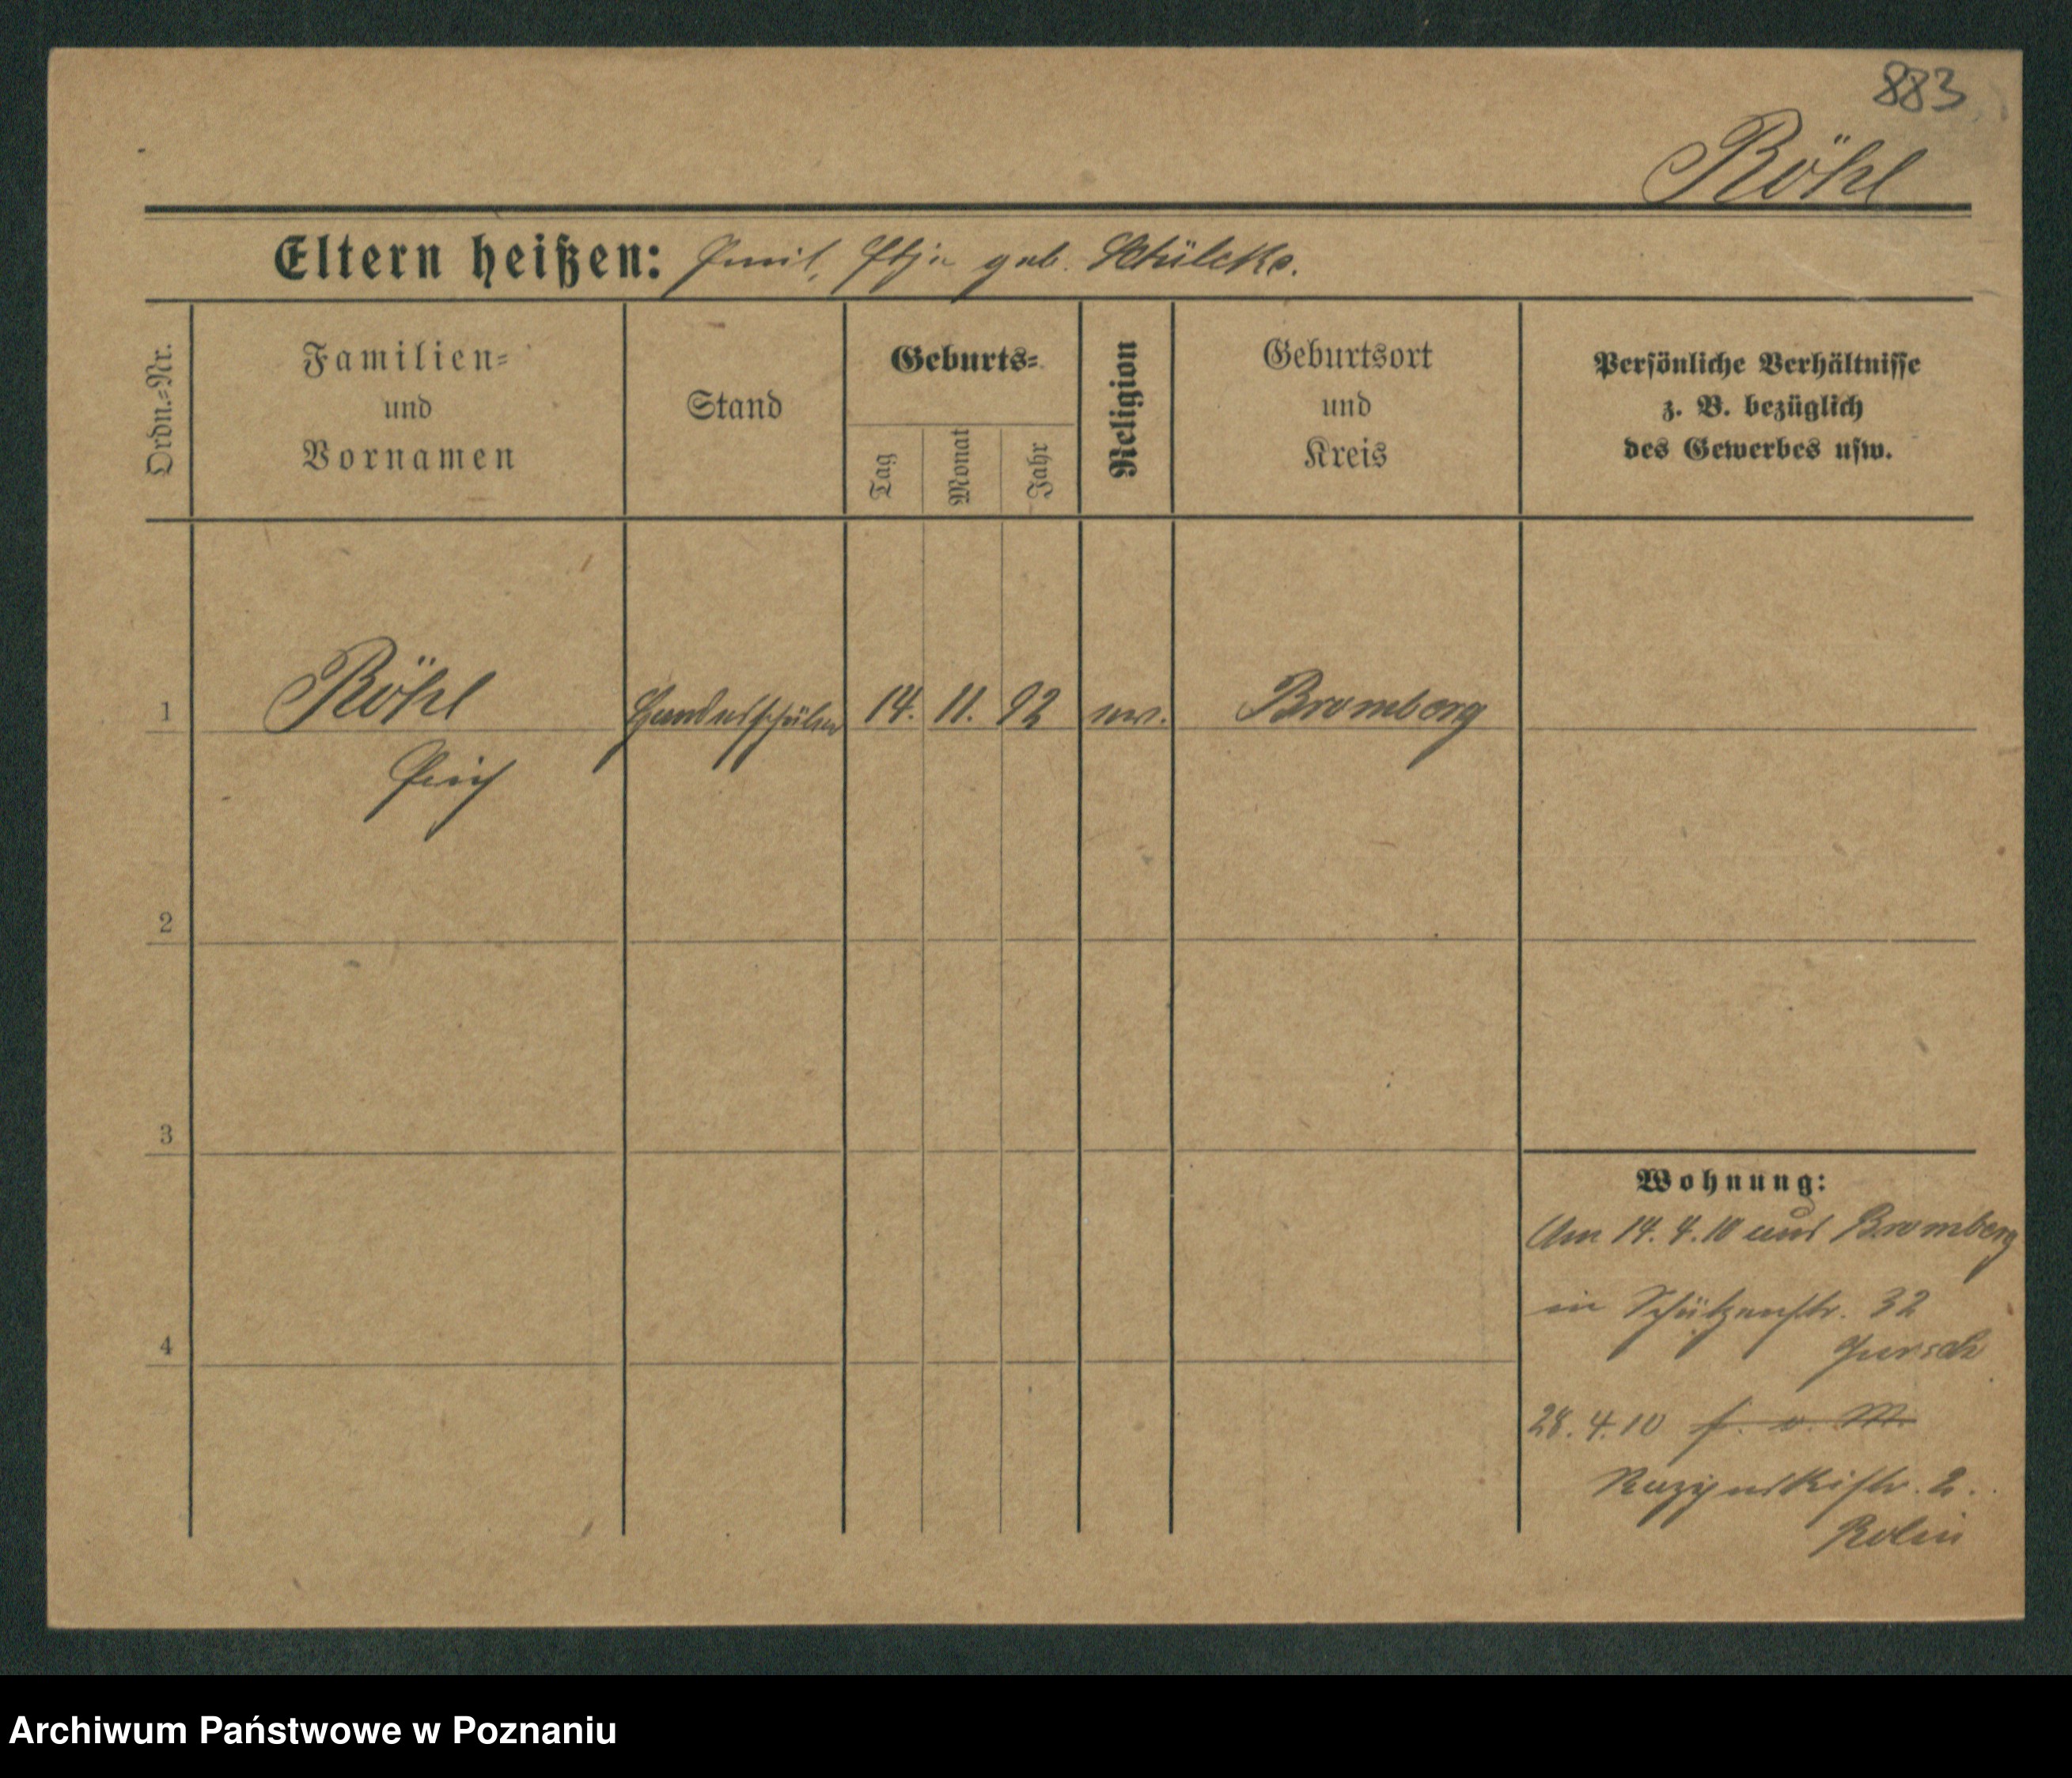 883
Röhl
Eltern heißen: Emil, geb. Schülcke.
Ordn.=Nr.
Familien=
und
Vornamen
Stand
Geburts=
Tag
Monat
Jahr
Religion
Geburtsort
und
Kreis
Persönliche Verhältnisse
z. B. bezüglich
des Gewerbes usw.
1
Röhl
Handelsschüler
14. 11. 92
ev.
Bromberg
Erich
2
3
4
Wohnung:
Am 14. 4. 10 aus Bromberg
in Schützenstr. 32
28. 4. 10
Raczynskistr. 2.
Archiwum Państwowe w Poznaniu